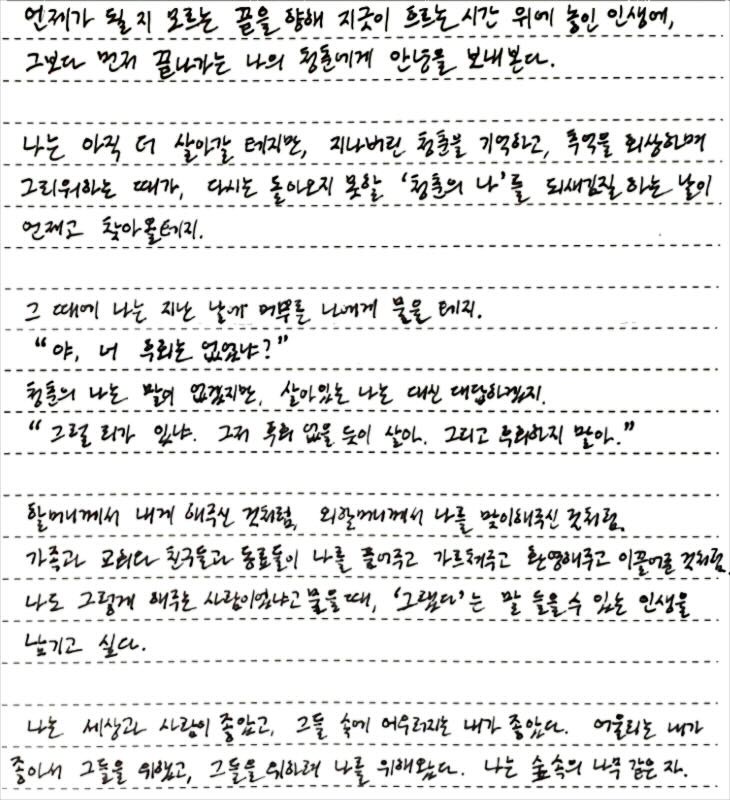 언제가 될 지 모르는 끝을 향해 지긋이 흐르는 시간 위에 놓인 인생에,
그보다 먼저 끝나가는 나의 청춘에게 안녕을 보내본다.
나는 아직 더 살아갈 테지만, 지나버린 청춘을 기억하고, 추억을 회상하며
그리워하는 때가, 다시는 돌아오지 못할 '청춘의 나'를 되새김질 하는 날이
언제고 찾아올테지.
그 때에 나는 지난 날에 머무를 나에게 물을 테지.
"야, 너 후회는 없었냐?"
청춘의 나는 말이 없겠지만, 살아있는 나는 대신 대답하겠지.
"그럴 리가 있냐. 그저 후회 없을 듯이 살아. 그리고 후회하지 말아."
할머니께서 내게 해주신 것처럼, 외할머니께서 나를 맞이해주신 것처럼,
가족과 교회와 친구들과 동료들이 나를 품어주고 가르쳐주고 환영해주고 이끌어준 것처럼,
나도 그렇게 해주는 사람이었냐고 물을 때, '그랬다'는 말 들을 수 있는 인생을
남기고 싶다.
나는 세상과 사람이 좋았고, 그들 속에 어우러지는 내가 좋았다. 어울리는 내가
좋아서 그들을 위했고, 그들을 위하려 나를 위해왔다. 나는 숲 속의 나무 같은 자.